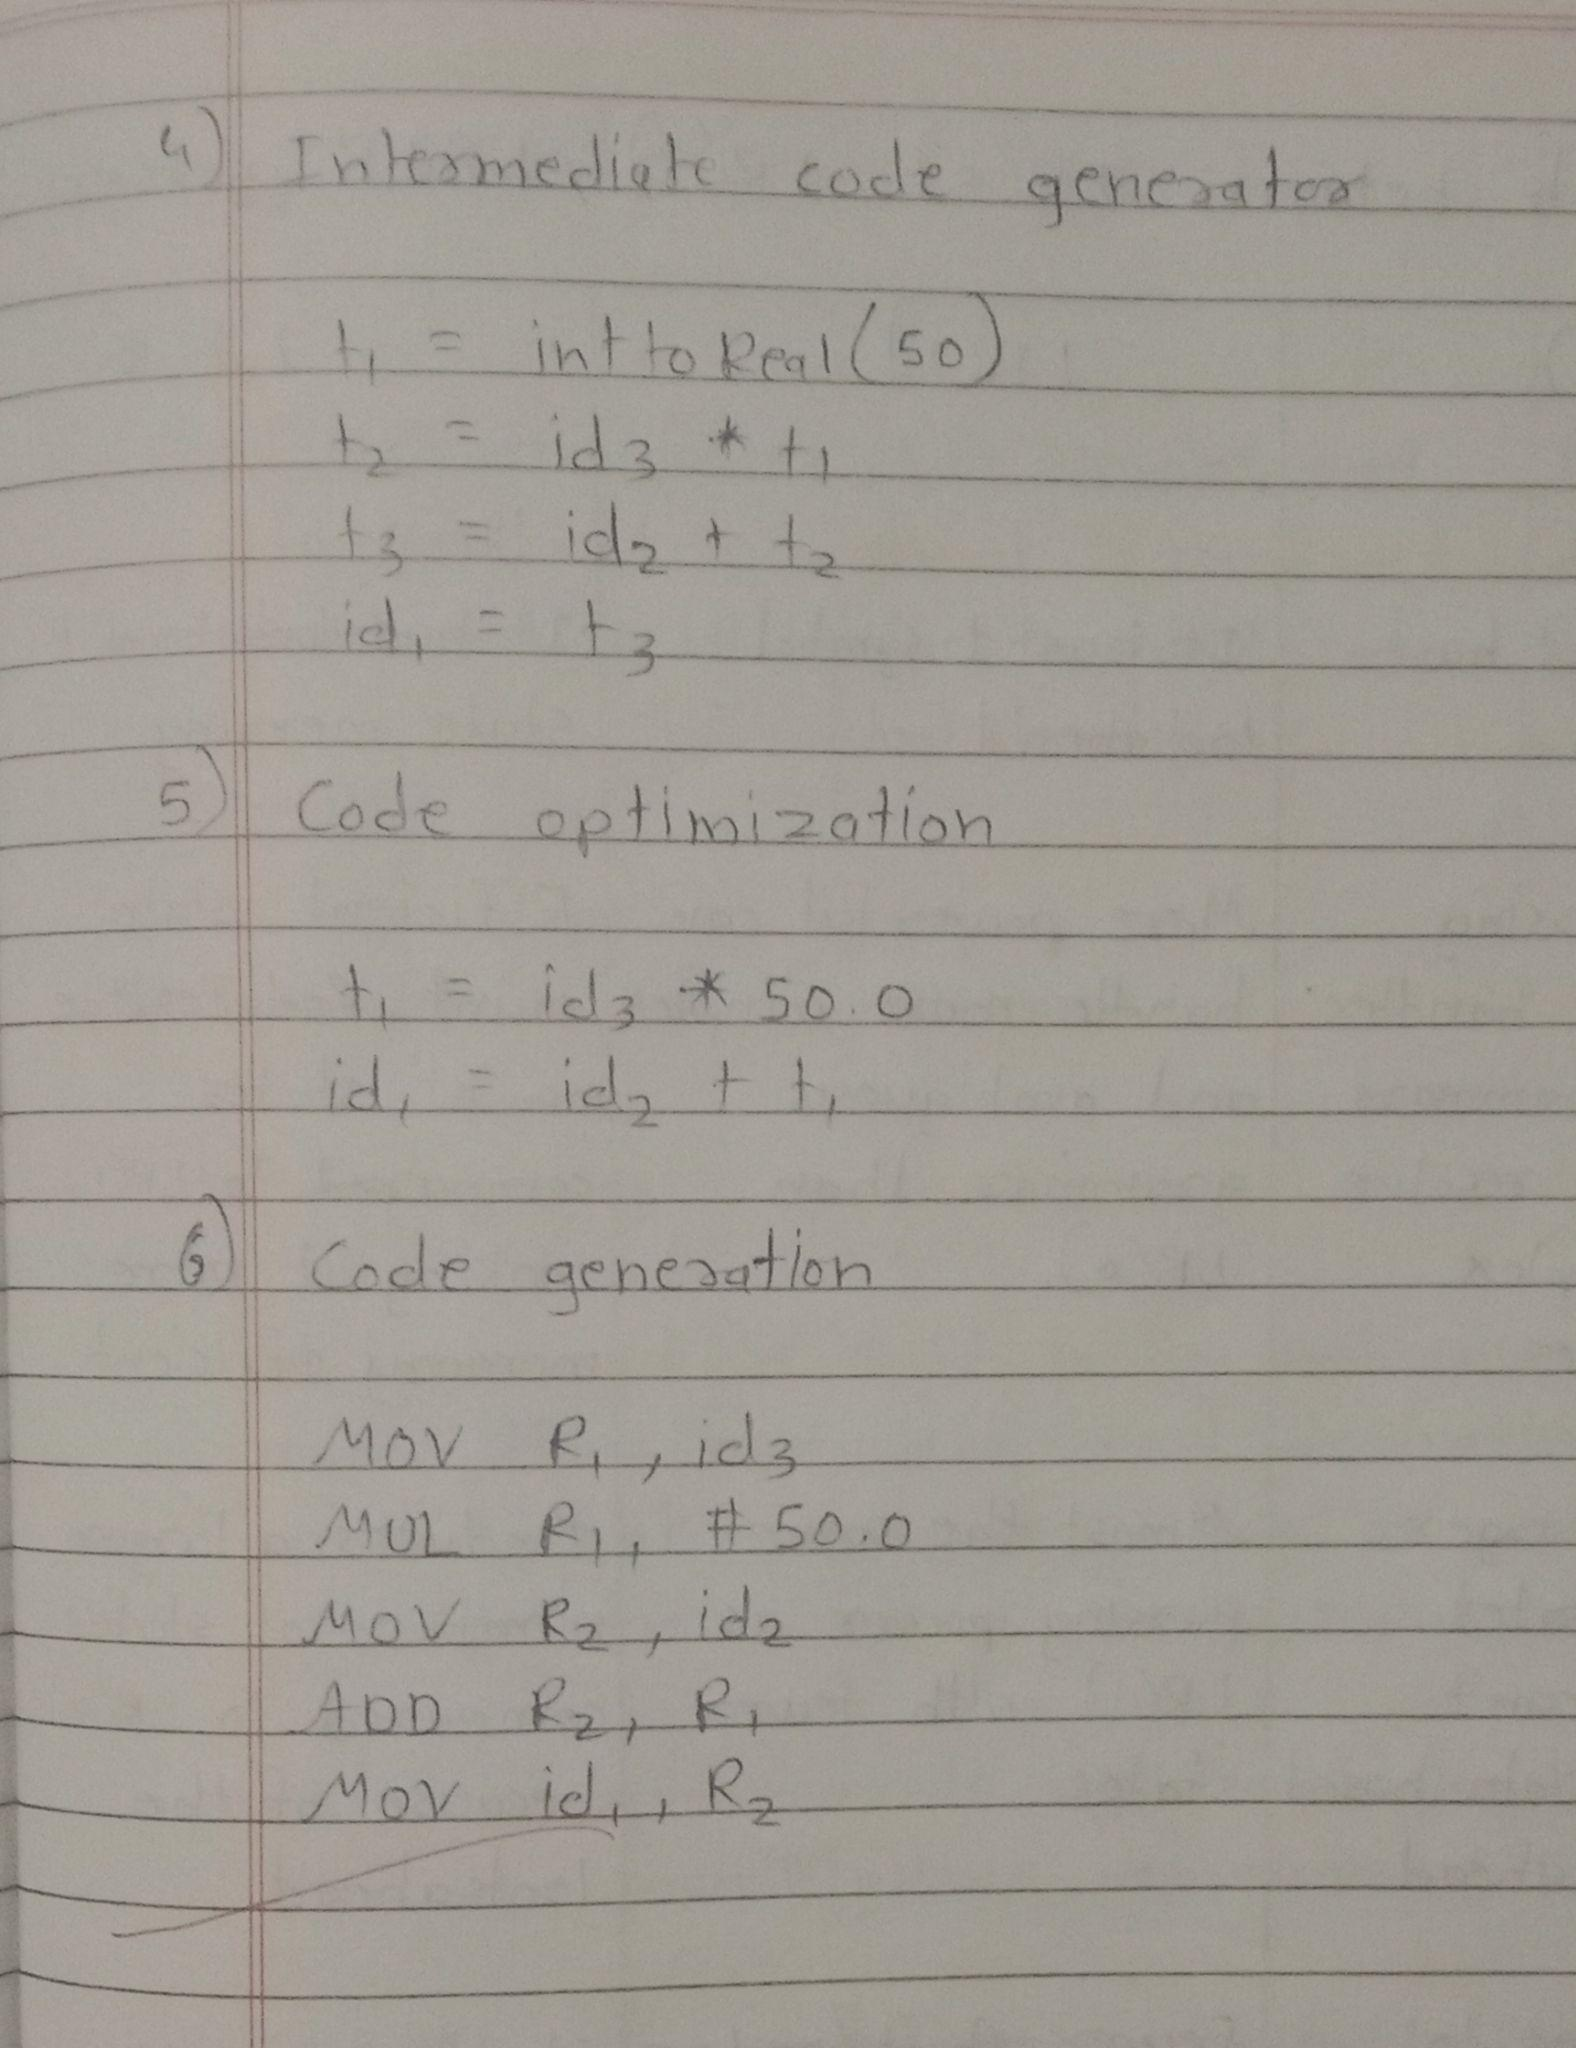 4) Intermediate code generator
t₁ = int to Real (50)
t₂ = id₃ * t₁
t₃ = id₂ + t₂
id₁ = t₃
5) Code optimization
t₁ = id₃ * 50.0
id₁ = id₂ + t₁
6) Code generation
MOV R₁, id₃
MUL R₁, #50.0
MOV R₂, id₂
ADD R₂, R₁
MOV id₁, R₂